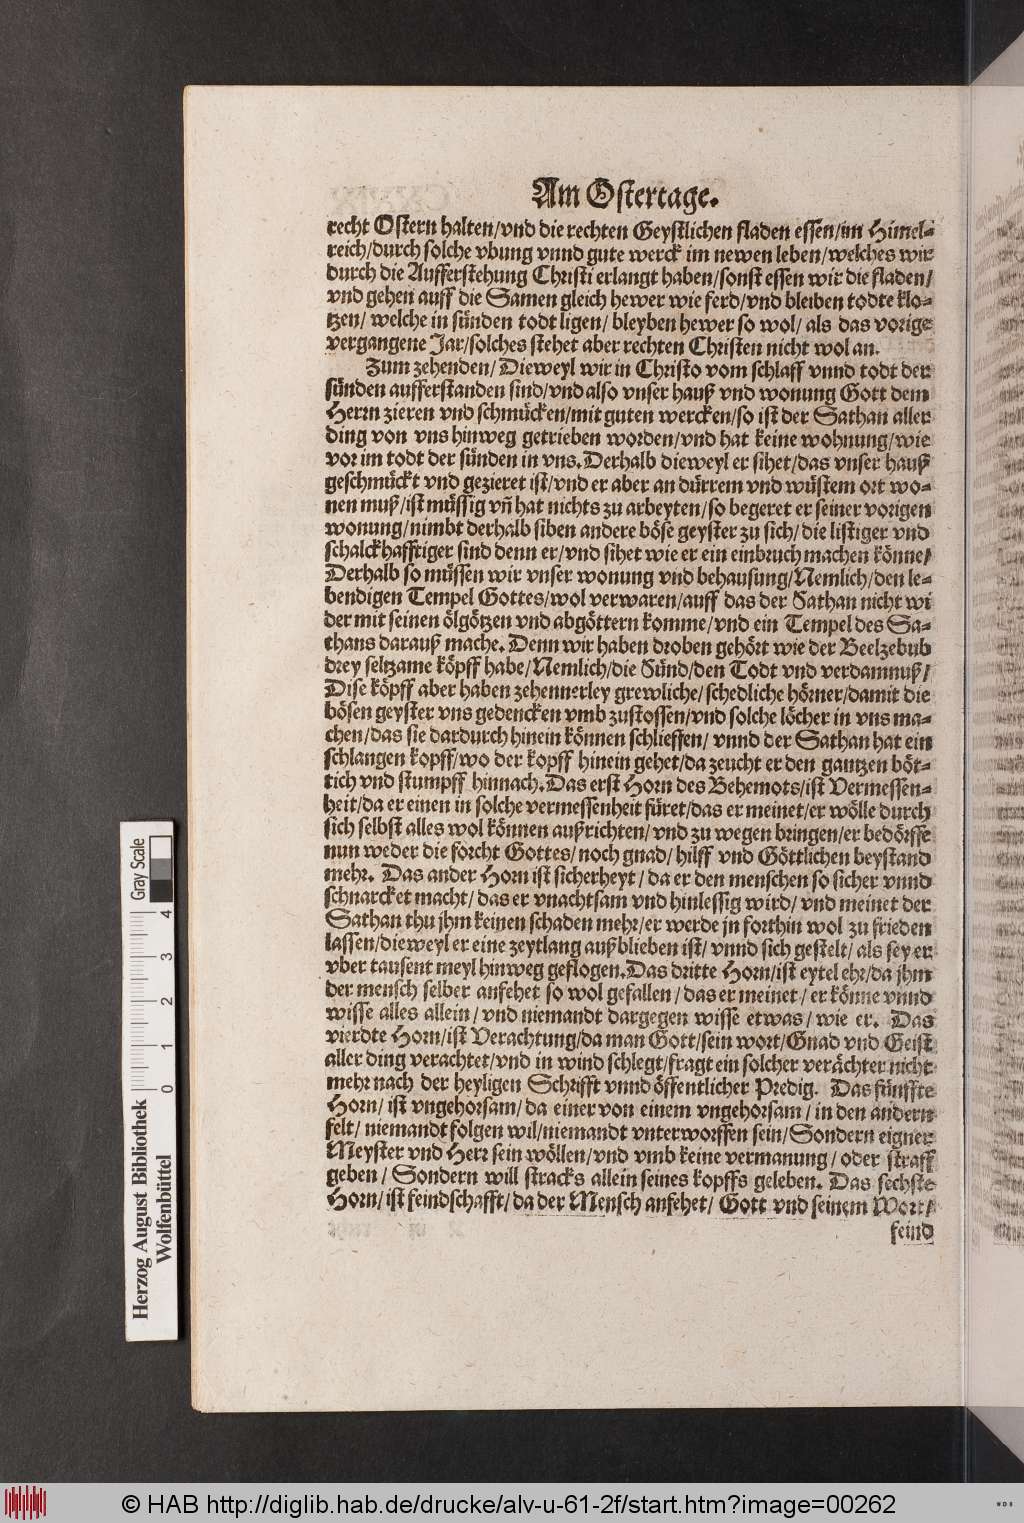 Am Ostertage.
recht Ostern halten/vnd die rechten Geystlichen fladen essen/im Himel-
reich/durch solche vbung vnnd gute werck im newen leben/welches wir
durch die Aufferstehung Christi erlangt haben/sonst essen wir die fladen/
vnd gehen auff die Samen gleich hewer wie ferd/vnd bleiben todte klo-
tzen/ welche in sünden todt ligen/ bleyben hewer so wol/ als das vorige
vergangene Jar/solches stehet aber rechten Christen nicht wol an.
Zum zehenden/ Dieweyl wir in Christo vom schlaff vnnd todt der
sünden aufferstanden sind/vnd also vnser hauß vnd wonung Gott dem
Herrn zieren vnd schmücken/mit guten wercken/so ist der Sathan aller
ding von vns hinweg getrieben worden/vnd hat keine wohnung/wie
vor im todt der sünden in vns. Derhalb dieweyl er sihet/das vnser hauß
geschmückt vnd gezieret ist/vnd er aber an dürrem vnd wüstem ort wo-
nen muß/ist müssig vñ hat nichts zu arbeyten/so begeret er seiner vorigen
wonung/nimbt derhalb siben andere böse geyster zu sich/die listiger vnd
schalckhafftiger sind denn er/vnd sihet wie er ein einbruch machen könne/
Derhalb so müssen wir vnser wonung vnd behausung/Nemlich/den le-
bendigen Tempel Gottes/wol verwaren/auff das der Sathan nicht wi
der mit seinen ölgötzen vnd abgöttern komme/vnd ein Tempel des Sa-
thans darauß mache. Denn wir haben droben gehört wie der Beelzebub
drey seltzame köpff habe/Nemlich/die Sünd/den Todt vnd verdamnuß/
Dise köpff aber haben zehennerley grewliche/schedliche hörner/damit die
bösen geyster vns gedencken vmb zustossen/vnd solche löcher in vns ma-
chen/das sie dardurch hinein können schlieffen/ vnnd der Sathan hat ein
schlangen kopff/wo der kopff hinein gehet/da zeucht er den gantzen böt-
tich vnd stumpff hinnach. Das erst Horn des Behemots/ist Vermessen-
heit/da er einen in solche vermessenheit füret/das er meinet/er wölle durch
sich selbst alles wol können außrichten/vnd zu wegen bringen/er bedörffe
nun weder die forcht Gottes/noch gnad/hilff vnd Göttlichen beystand
mehr. Das ander Horn ist sicherheyt/da er den menschen so sicher vnnd
schnarcket macht/das er vnachtsam vnd hinlessig wird/vnd meinet der
Sathan thu jhm keinen schaden mehr/er werde jn forthin wol zu frieden
lassen/dieweyl er eine zeytlang außblieben ist/vnnd sich gestelt/als sey er
vber tausent meyl hinweg geflogen. Das dritte Horn/ist eytel ehr/da jhm
der mensch selber anfehet so wol gefallen/das er meinet/er könne vnnd
wisse alles allein/vnd niemandt dargegen wisse etwas/wie er. Das
vierdte Horn/ist Verachtung/da man Gott/sein wort/Gnad vnd Geist
aller ding verachtet/vnd in wind schlegt/fragt ein solcher verächter nicht
mehr nach der heyligen Schrifft vnnd öffentlicher Predig. Das fünffte
Horn/ist vngehorsam/da einer von einem vngehorsam/in den andern
felt/niemandt folgen wil/niemandt vnterworffen sein/Sondern eigner
Meyster vnd Herr sein wöllen/vnd vmb keine vermanung/oder straff
geben/Sondern will stracks allein seines kopffs geleben. Das sechste
Horn/ist feindschafft/da der Mensch anfehet/Gott vnd seinem Wort/
feind
Gray Scale
4 3 2 1 0
Herzog August Bibliothek
Wolfenbüttel
© HAB http://diglib.hab.de/drucke/alv-u-61-2f/start.htm?image=00262
WDB